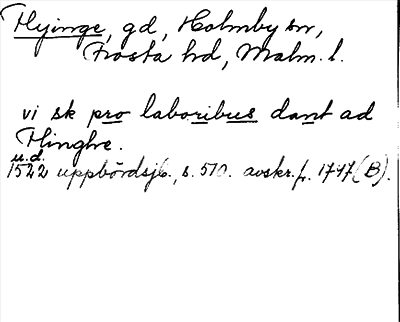 Flyinge, gd, Holmby sn,
Frosta hd, Malm. l.
vi sk pro laboribus dant ad
Flinghe.
u.d.
1522 uppbördsjb., s. 510. avskr. fr. 1797 (B).